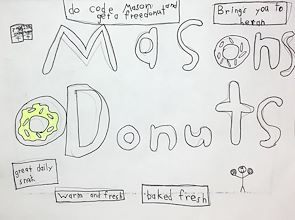 do code Mason and
get a free donut
Brings you to
heven
Masons
Donuts
great daily
snak
warm and fresh
baked fresh